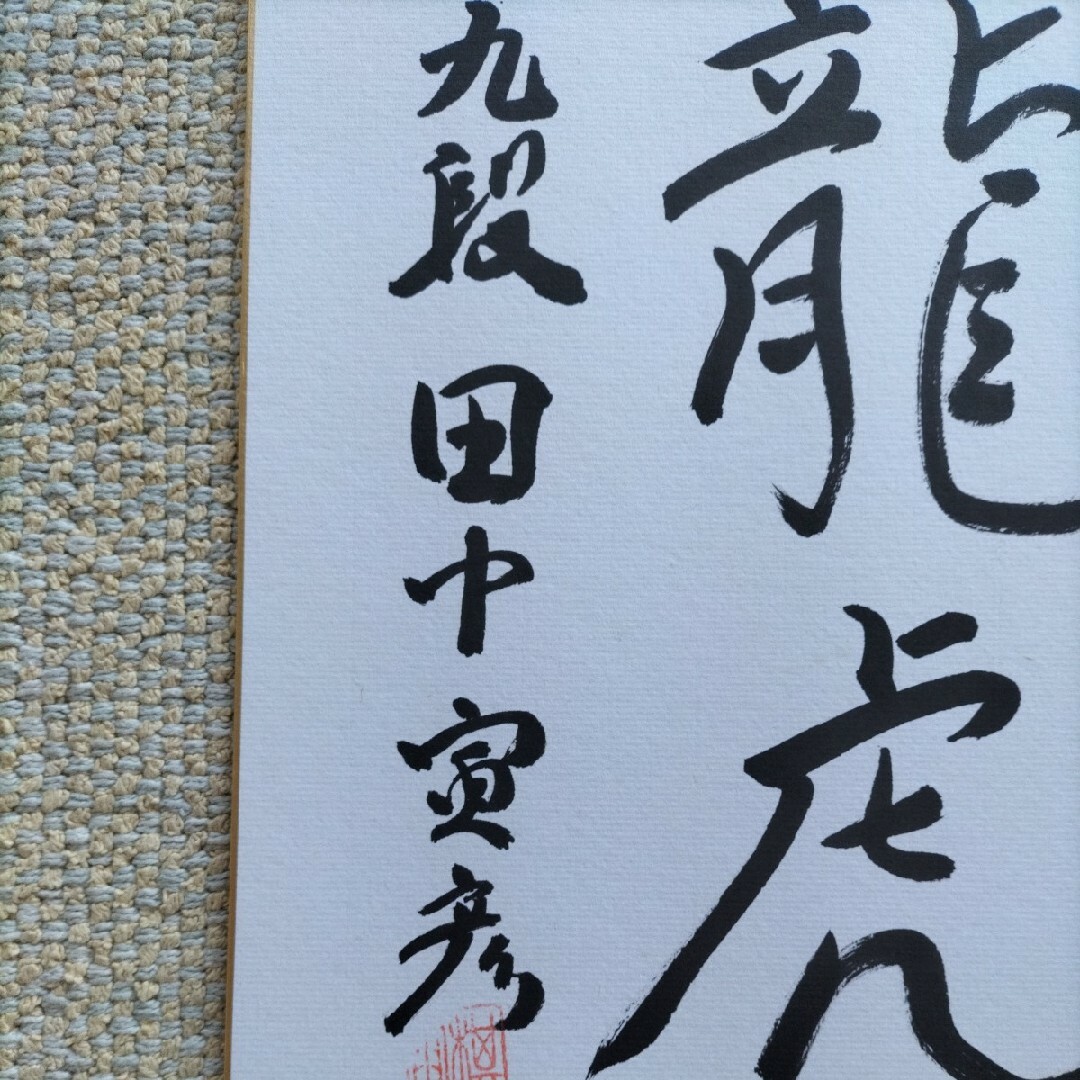 龍虎
九段 田中寅彦